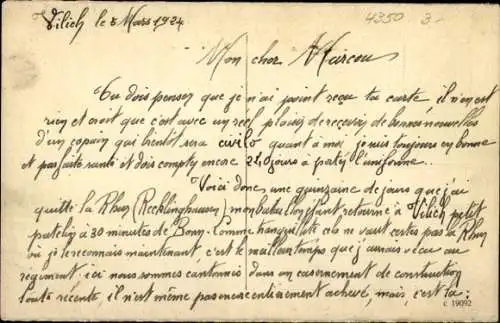 Vilich le 5 Mars 1924
4350 3-
Mon cher Marceau
Tu dois penser que je n'ai point reçu ta carte il n'en est
rien et croit que c'est avec un réel plaisir de recevoir de bonnes nouvelles
d'un copain qui bientôt sera civil quant à moi je suis toujours en bonne
et parfaite santé et dois compter encore 240 jours à porter l'uniforme..
Voici donc une quinzaine de jours que j'ai
quitté la Rhur (Recklinghausen) mon bataillon étant retourné à Vilich petit
patelin à 30 minutes de Bonn. Comme tranquillité cela ne vaut certes pas la Rhur
où je le reconnais maintenant c'est le meilleur temps que j'aurais vécu au
régiment, ici nous sommes cantonnés dans un casernement de construction
toute récente il n'est même pas encore entièrement achevé, mais c'est là:
c 19092